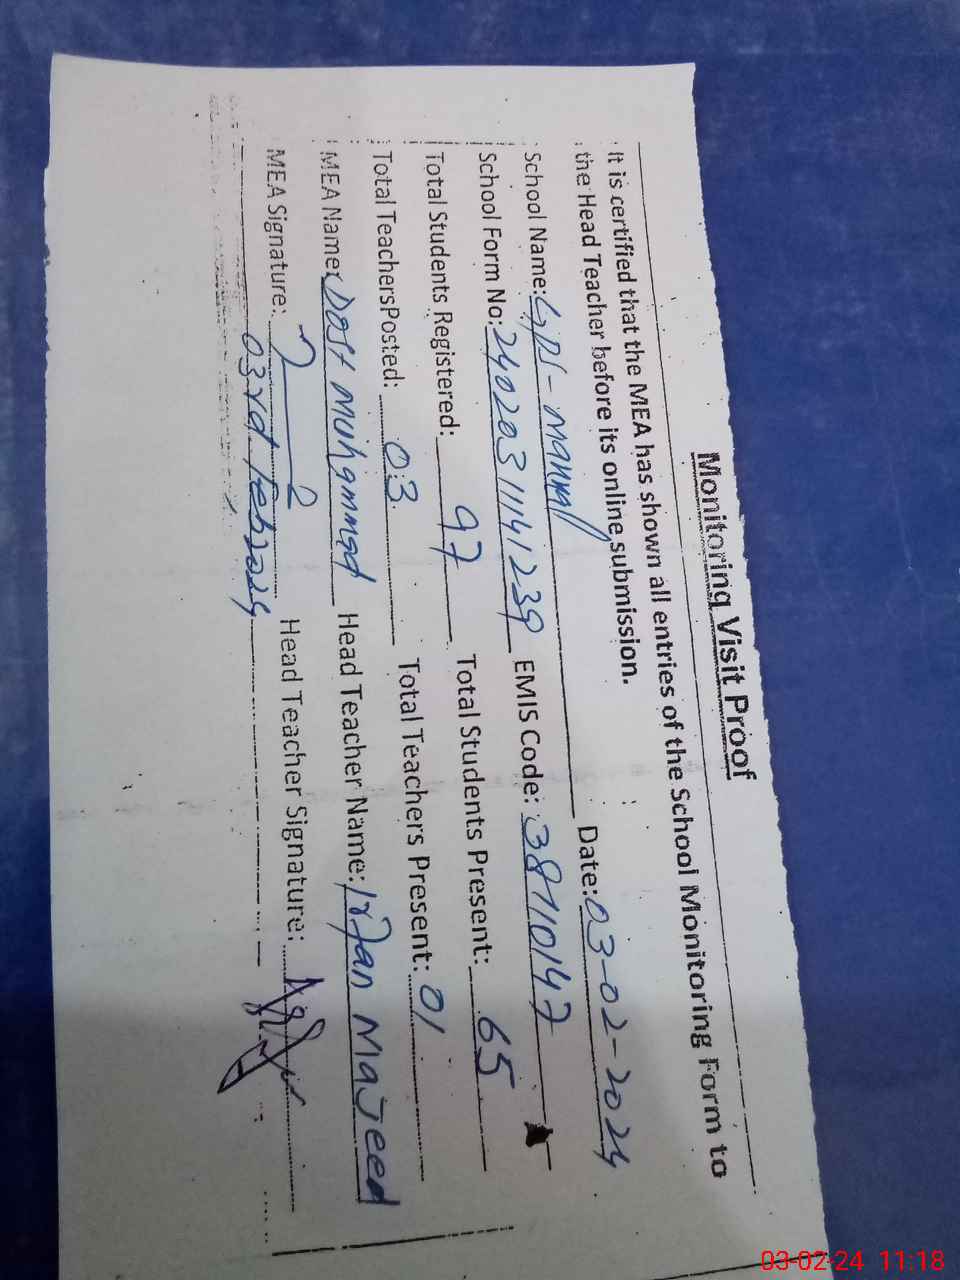 Monitoring Visit Proof
It is certified that the MEA has shown all entries of the School Monitoring Form to
the Head Teacher before its online submission.
School Name: GPS - Date: 03-02-2024
School Form No: EMIS Code: 38710147
Total Students Registered: 97 Total Students Present: 65
Total TeachersPosted: 03 Total Teachers Present: 01
MEA Name: Dost Muhammad Head Teacher Name: Irfan Majeed
MEA Signature: Head Teacher Signature:
03rd Feb 2024
03-02-24 11:18